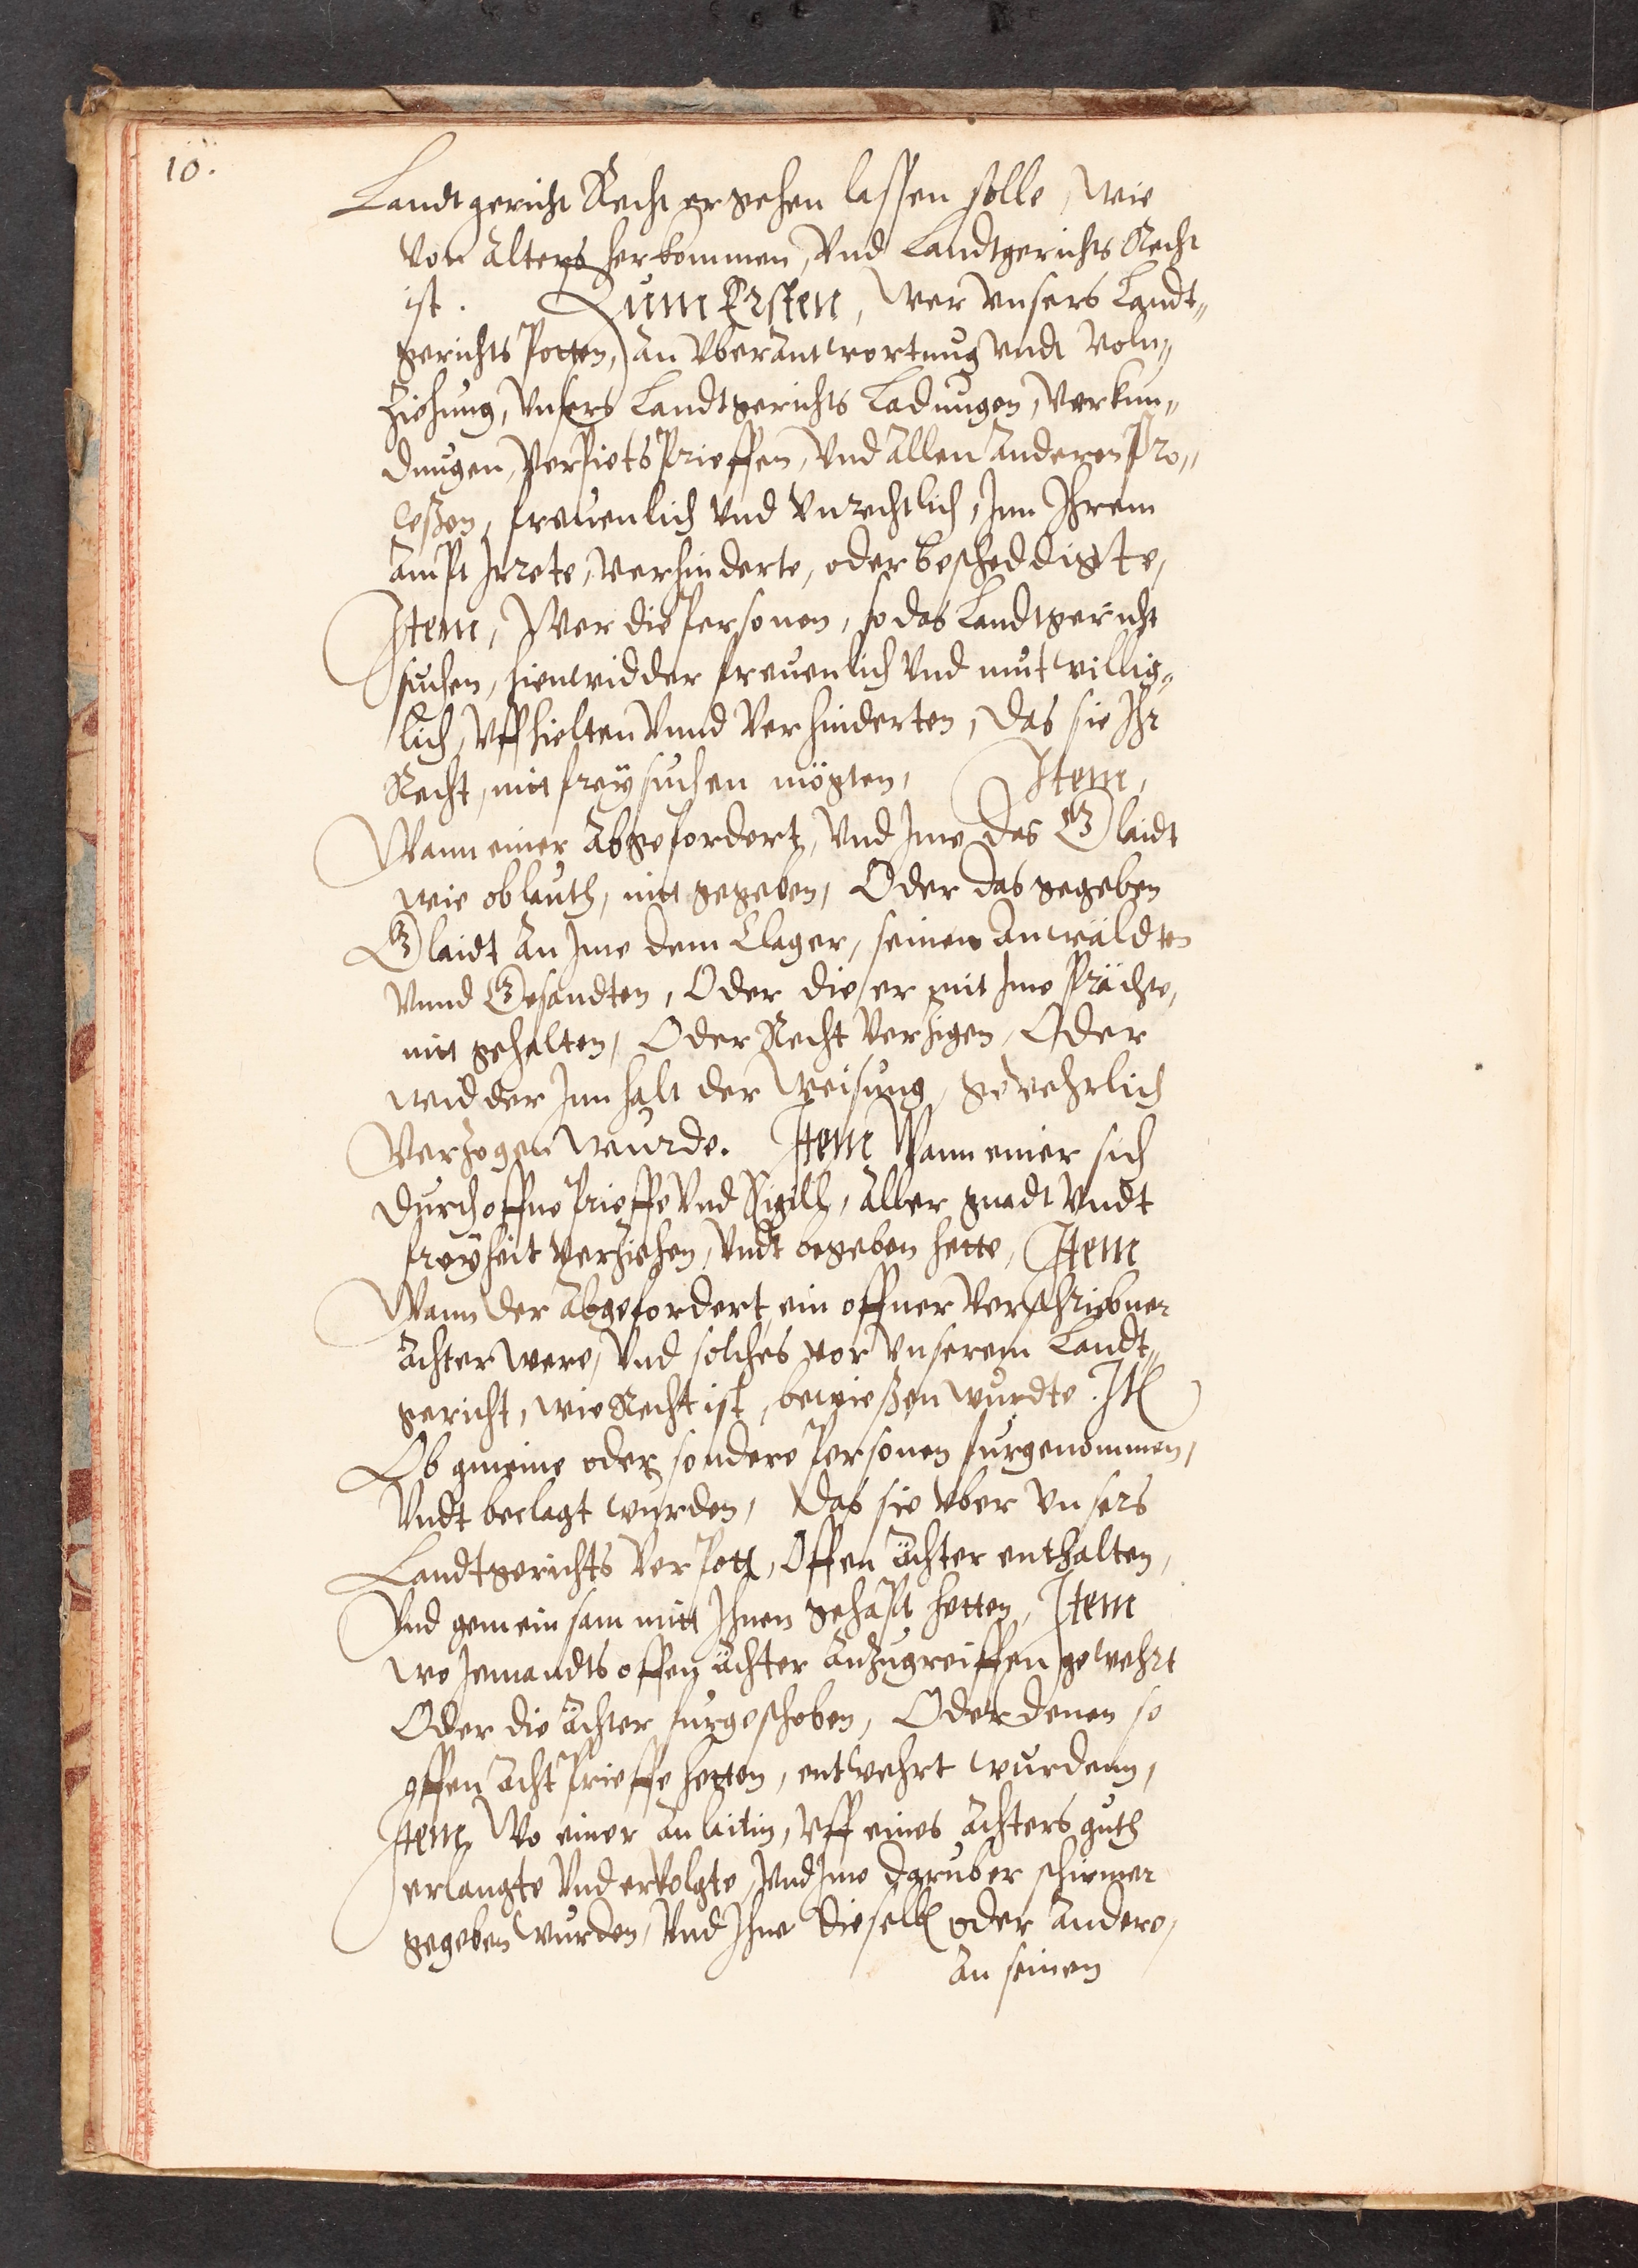 10.
Landtgericht Recht ergehen lassen solle, Wie
von alters herkommen, Vnd Landtgerichts Recht
ist. Zum Ersten, Wer vnsers Landt„
gerichts Potten, an vberantwortung vndt Voln„
ziehung, vnsers Landtgerichts Ladungen, Verkun„
dungen, Verpietsprieffen, Vnd allen anderen Pro„
cessen, freuenlich vnd vnrechtlich, Inn Ihrem
ampt Irrete, verhinderte, oder bescheddigte,
Item, Wer die Personen, so das Landtgericht
suchen, hienwidder freuenlich vnd mutwillig„
lich, vffhielten vnnd verhinderten, das sie Ihr
Recht, nitt frey suchen mögten, Item,
Wann einer abgefordert, Vnd Ime das Glaidt
wie oblauth, nitt gegeben, Oder das gegeben
Glaidt an Ime dem Clager, seinen Anwäldten
vnnd Gesandten, Oder die er mit Ime prächte,
nitt gehalten, Oder Recht verzigen, Oder
widder Innhalt der Weisung, gewehrlich
Verzogen wurde. Item Wann einer sich
durch offne prieffe vnd Sigill, aller gnadt vndt
freyheit verziehen, vndt begeben hette, Item
Wann der abgefordert, ein offner verschriebner
ächter were, vnd solches vor vnserem Landt„
gericht, wie Recht ist, bewießen wurdte. It
Ob gmeine oder sondere Personen furgenommen,
vndt beclagt wurden, das sie vber vnsers
Landtgerichts verpott, Offen ächter enthalten,
Vnd gemeinsam mitt Ihnen gehapt hetten, Item
wo Jemandts offen ächter anzugreiffen gewehrt
Oder die ächter furgeschoben, Oder denen so
offen acht prieffe hetten, entwehrt wurdenn,
Item Wo einer anlaitin, vff eines achters guth
erlangte vnd ervolgte, vnd Ime daruber schirmer
gegeben wurden, vnd Ihne dieselb oder andere,
an seinen